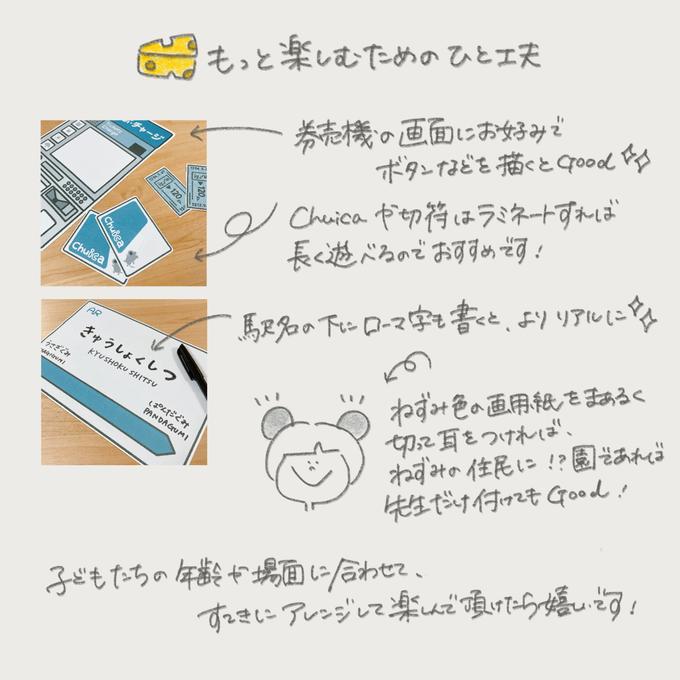 もっと楽しむためのひと工夫
券売機の画面にお好みで
ボタンなどを描くとGood
Chuica や切符はラミネートすれば
長く遊べるのでおすすめです!
チャージ
Chuica
Chuica
120
120
駅名の下にローマ字も書くと、よりリアルに
AR
きゅうしょくしつ
KYUSHOKU SHITSU
うさぎぐみ
USAGIGUMI
ぱんだぐみ
PANDAGUMI
ねずみ色の画用紙をまあるく
切って耳をつければ、
ねずみの住民に!?園であれば
先生だけ付けてもGood!
子どもたちの年齢や場面に合わせて、
すてきにアレンジして楽しんで頂けたら嬉しいです!